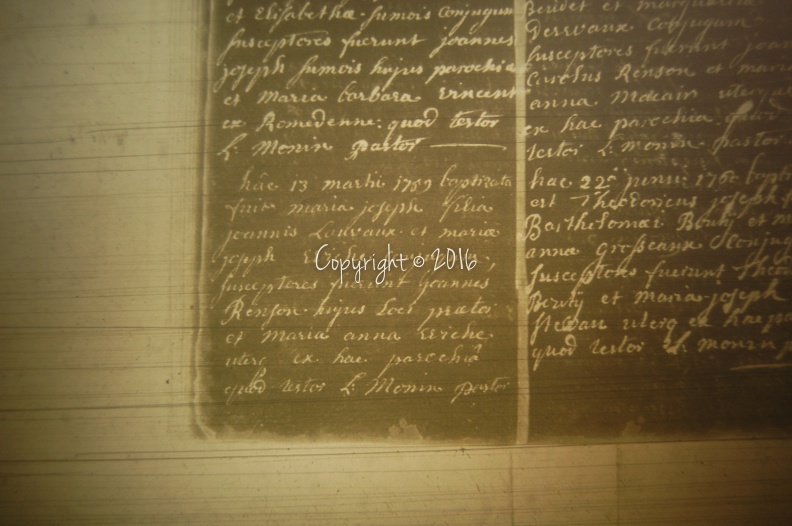 et Elisabethæ fumois conjugum
susceptores fuerunt joannes
joseph fumois hujus parochiæ
et maria barbara vincent
ex Romedenne quod testor
L: Monin pastor
hâc 13 martii 1759 baptizata
fuit maria joseph filia
joannis Louvaux et mariæ
joseph
susceptores fuerunt joannes
Renson hujus loci prætor
et maria anna
uterq ex hac parochiâ
quod testor L: Monin pastor
Beudet et margaritæ
Derevaux conjugum
susceptores fuerunt joan
Carolus Renson et maria
anna uterque
ex hac parochia quod
testor L: monin pastor
hac 22â junii 1760 bapti
est Theodoricus joseph f
Bartholomæi Bouty et m
annæ Groseaux conjug
susceptores fuerunt Theo
Bouty et maria joseph
uterq ex hac pa
quod testor L: monin p
Copyright © 2016